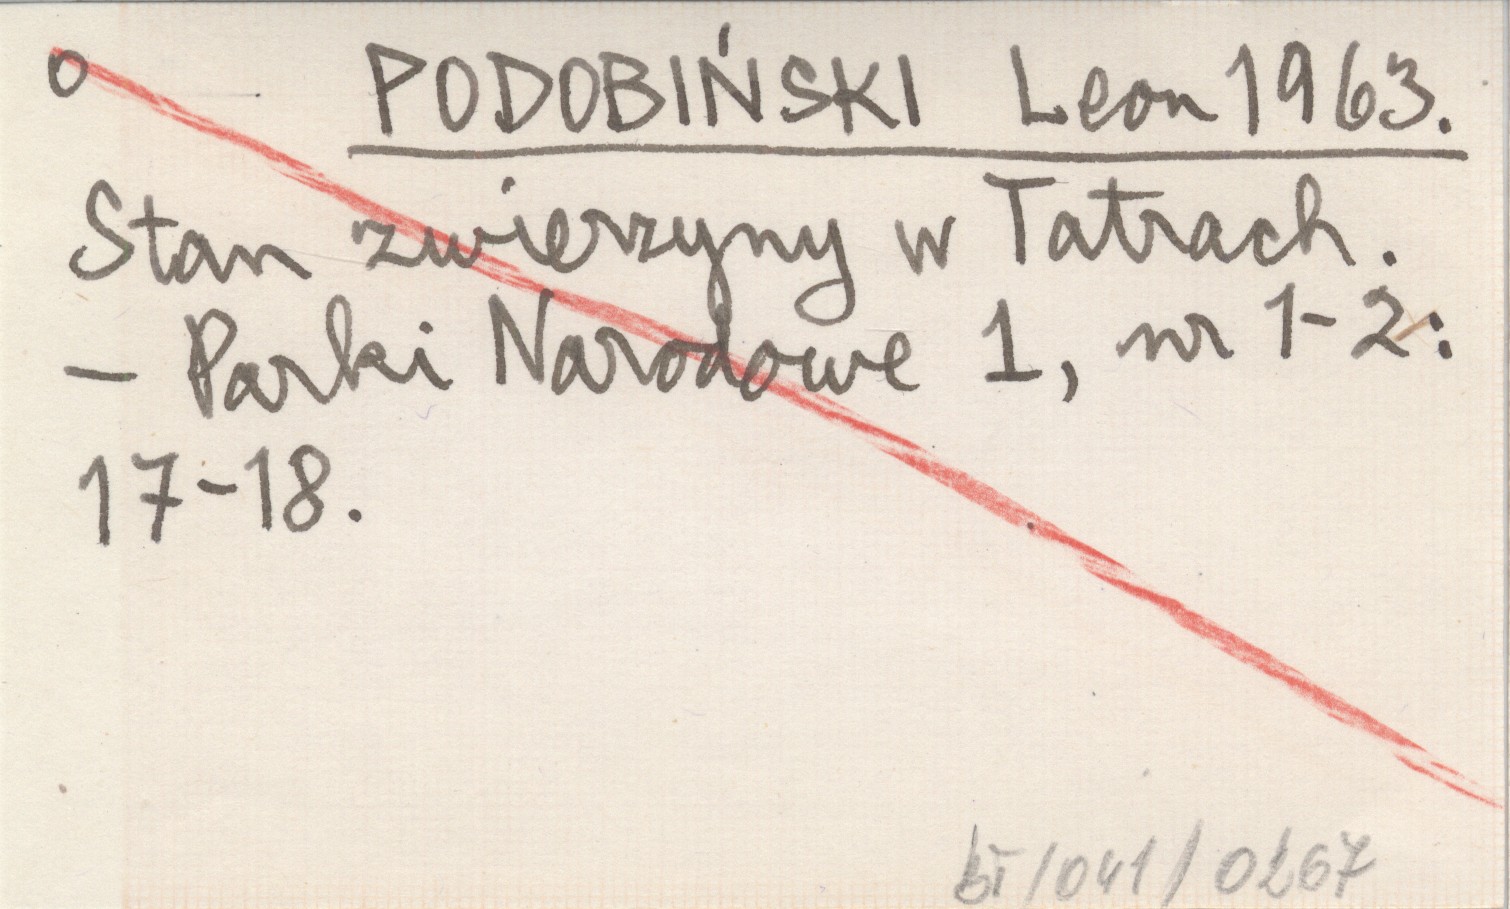 o PODOBIŃSKI Leon 1963.
Stan zwierzyny w Tatrach.
– Parki Narodowe 1, nr 1-2:
17-18.
/041/0267